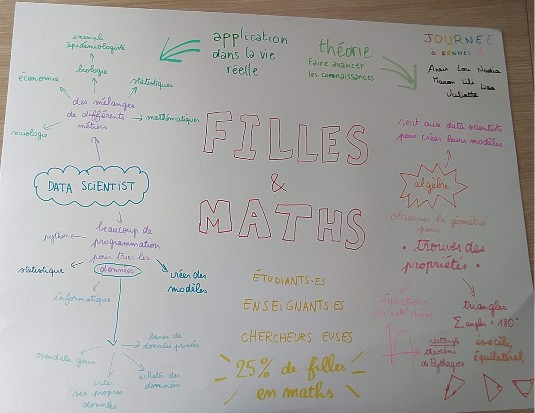 exemple
épidémiologiste
économie
biologie
statistiques
des mélanges
de différents
métiers
mathématiques
sociologie
DATA SCIENTIST
beaucoup de
programmation
pour trier les
données
python
statistique
informatique
créer des
modèles
bases de
données privées
opendata gouv
acheter des
données
créer
ses propres
données
application
dans la vie
réelle
théorie
Faire avancer
les connaissances
FILLES
&
MATHS
ÉTUDIANT·ES
ENSEIGNANT·ES
CHERCHEURS EUSES
25% de filles
en maths
JOURNÉE
à RENNES 2
Anaïs Lou Nadia
Manon Lili Lisa
Juliette
sert aux data scientists
pour créer leurs modèles
algèbre
observer la géométrie
pour
• trouver des
propriétés •
triangles
Σ angles = 180°
rectangle
théorème
de Pythagore
isocèle,
équilatéral